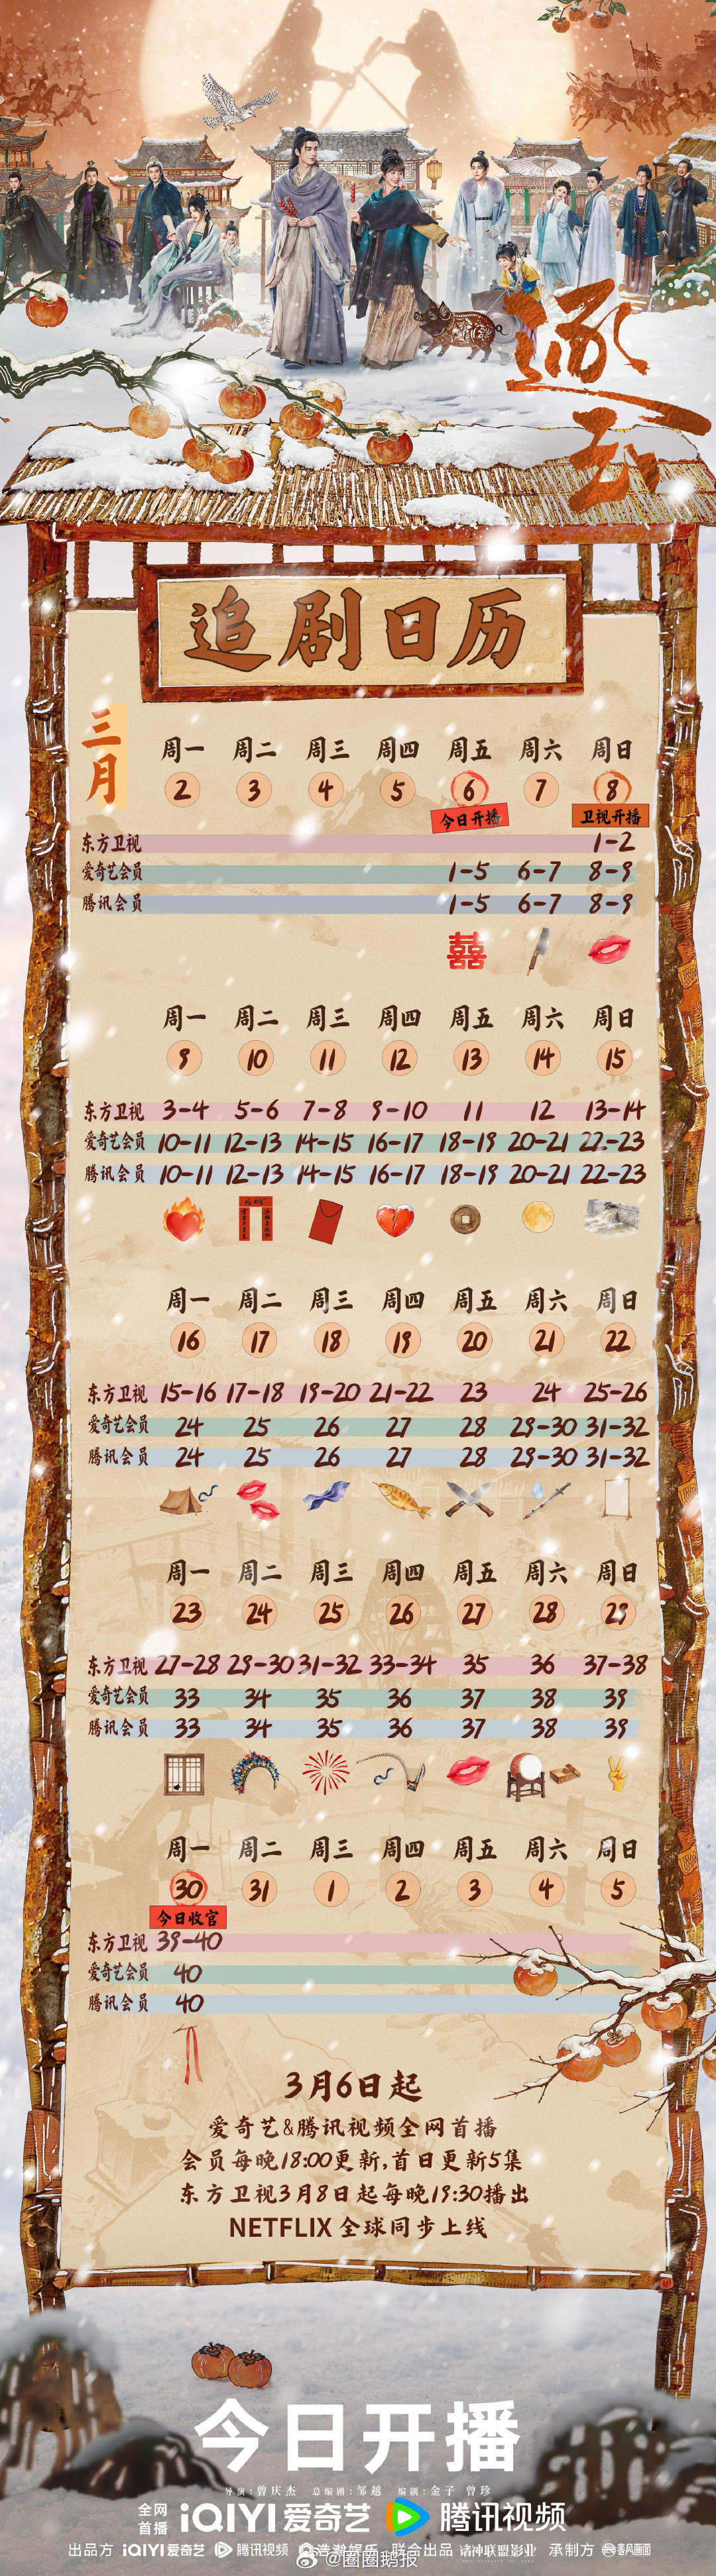 逐玉
追剧日历
三月
周一 周二 周三 周四 周五 周六 周日
2 3 4 5 6 7 8
今日开播 卫视开播
东方卫视 1-2
爱奇艺会员 1-5 6-7 8-9
腾讯会员 1-5 6-7 8-9
囍
周一 周二 周三 周四 周五 周六 周日
9 10 11 12 13 14 15
东方卫视 3-4 5-6 7-8 9-10 11 12 13-14
爱奇艺会员 10-11 12-13 14-15 16-17 18-19 20-21 22-23
腾讯会员 10-11 12-13 14-15 16-17 18-19 20-21 22-23
周一 周二 周三 周四 周五 周六 周日
16 17 18 19 20 21 22
东方卫视 15-16 17-18 19-20 21-22 23 24 25-26
爱奇艺会员 24 25 26 27 28 29-30 31-32
腾讯会员 24 25 26 27 28 29-30 31-32
周一 周二 周三 周四 周五 周六 周日
23 24 25 26 27 28 29
东方卫视 27-28 29-30 31-32 33-34 35 36 37-38
爱奇艺会员 33 34 35 36 37 38 39
腾讯会员 33 34 35 36 37 38 39
周一 周二 周三 周四 周五 周六 周日
30 31 1 2 3 4 5
今日收官
东方卫视 39-40
爱奇艺会员 40
腾讯会员 40
3月6日起
爱奇艺&腾讯视频全网首播
会员每晚18:00更新,首日更新5集
东方卫视3月8日起每晚19:30播出
NETFLIX 全球同步上线
今日开播
导演:曾庆杰 总编剧:邹越 编剧:金子 曾珍
全网首播 iQIYI爱奇艺 腾讯视频
出品方 iQIYI爱奇艺 腾讯视频 浩瀚娱乐 联合出品 诸神联盟影业 承制方 春风画面
@圈圈鹅报